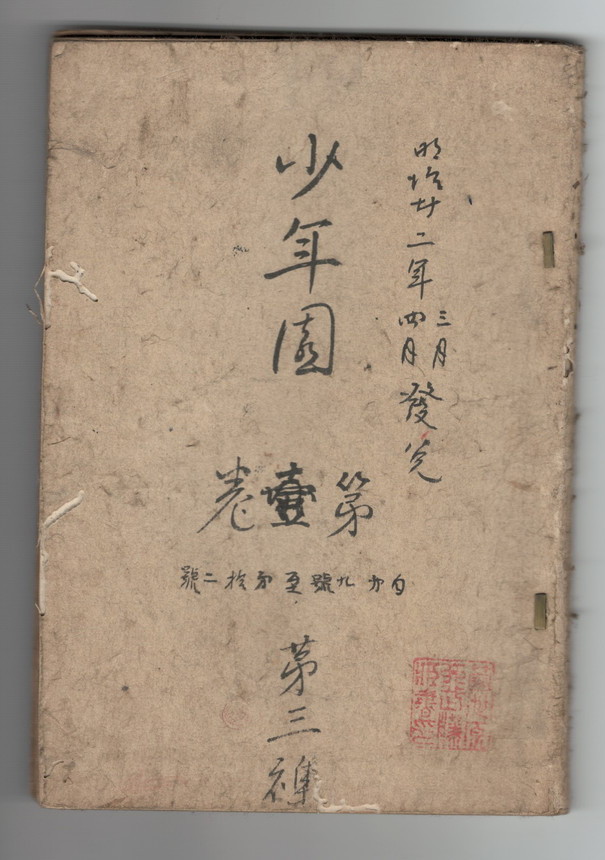 明治廿二年三月四月發兌
少年園
第壹卷
自第九號至第拾二號
第三